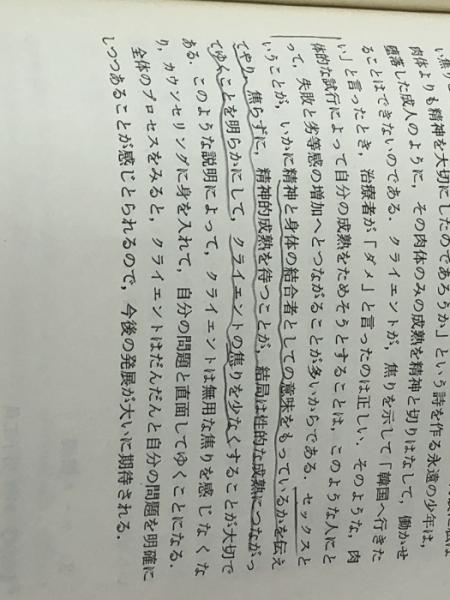 肉体よりも精神を大切にしたのであろうか」という詩を作る永遠の少年は,
堕落した成人のように, その肉体のみの成熟を精神と切りはなして, 働かせ
ることはできないのである. クライエントが, 焦りを示して「韓国へ行きた
い」と言ったとき, 治療者が「ダメ」と言ったのは正しい. そのような, 肉
体的な試行によって自分の成熟をためそうとすることは, このような人にと
って, 失敗と劣等感の増加へとつながることが多いからである. セックスと
いうことが, いかに精神と身体の結合者としての意味をもっているかを伝え
てやり, 焦らずに, 精神的成熟を待つことが, 結局は性的な成熟につながっ
てゆくことを明らかにして, クライエントの焦りを少なくすることが大切で
ある. このような説明によって, クライエントは無用な焦りを感じなくな
り, カウンセリングに身を入れて, 自分の問題と直面してゆくことになる.
全体のプロセスをみると, クライエントはだんだんと自分の問題を明確に
しつつあることが感じとられるので, 今後の発展が大いに期待される.